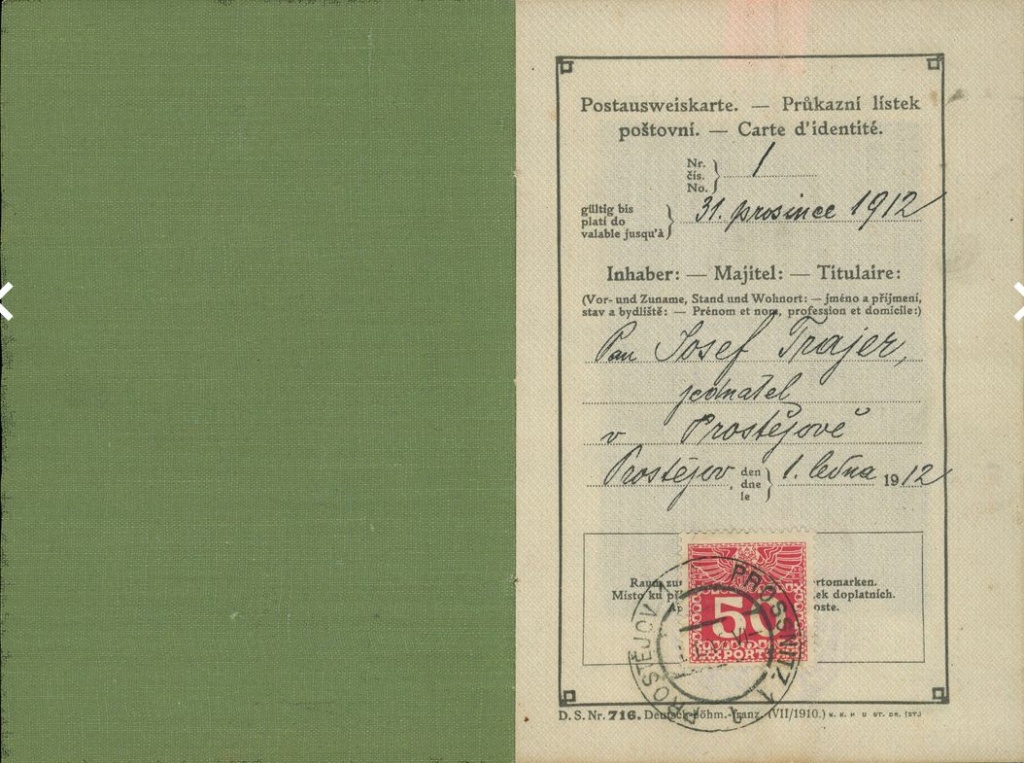 Postausweiskarte. — Průkazní lístek
poštovní. — Carte d'identité.
Nr.
čís.
No.
1
gültig bis
platí do
valable jusqu'à
31. prosince 1912
Inhaber: — Majitel: — Titulaire:
(Vor- und Zuname, Stand und Wohnort: — jméno a příjmení,
stav a bydliště: — Prénom et nom, profession et domicile:)
Pan Josef Trajer,
jednatel
v Prostějově
Prostějov, den dne le 1. ledna 1912
Raum zu rtomarken.
Místo ku ek doplatních.
50
PORTO
PROSTĚJOV 1 PROSSNITZ 1
D. S. Nr. 716. Deutsch-böhm.-franz. (VII/1910.)